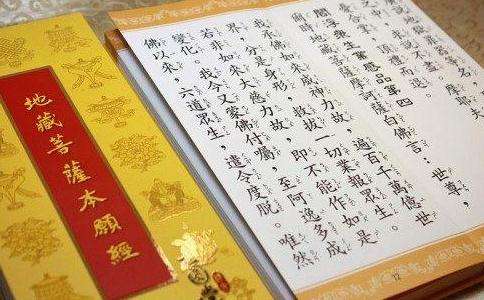 地藏菩薩本願經
之中，求說不盡。摩耶夫
頂禮而退
閻浮眾生業感品第四
爾時地藏菩薩摩訶薩白佛言：世尊，
我承佛如來威神力故，遍百千萬億世
界，分是身形，救拔一切業報眾生。
若非如來大慈力故，即不能作如是
變化。我今又蒙佛付囑，至阿逸多成
佛以來，六道眾生，遣令度脫。唯然
12